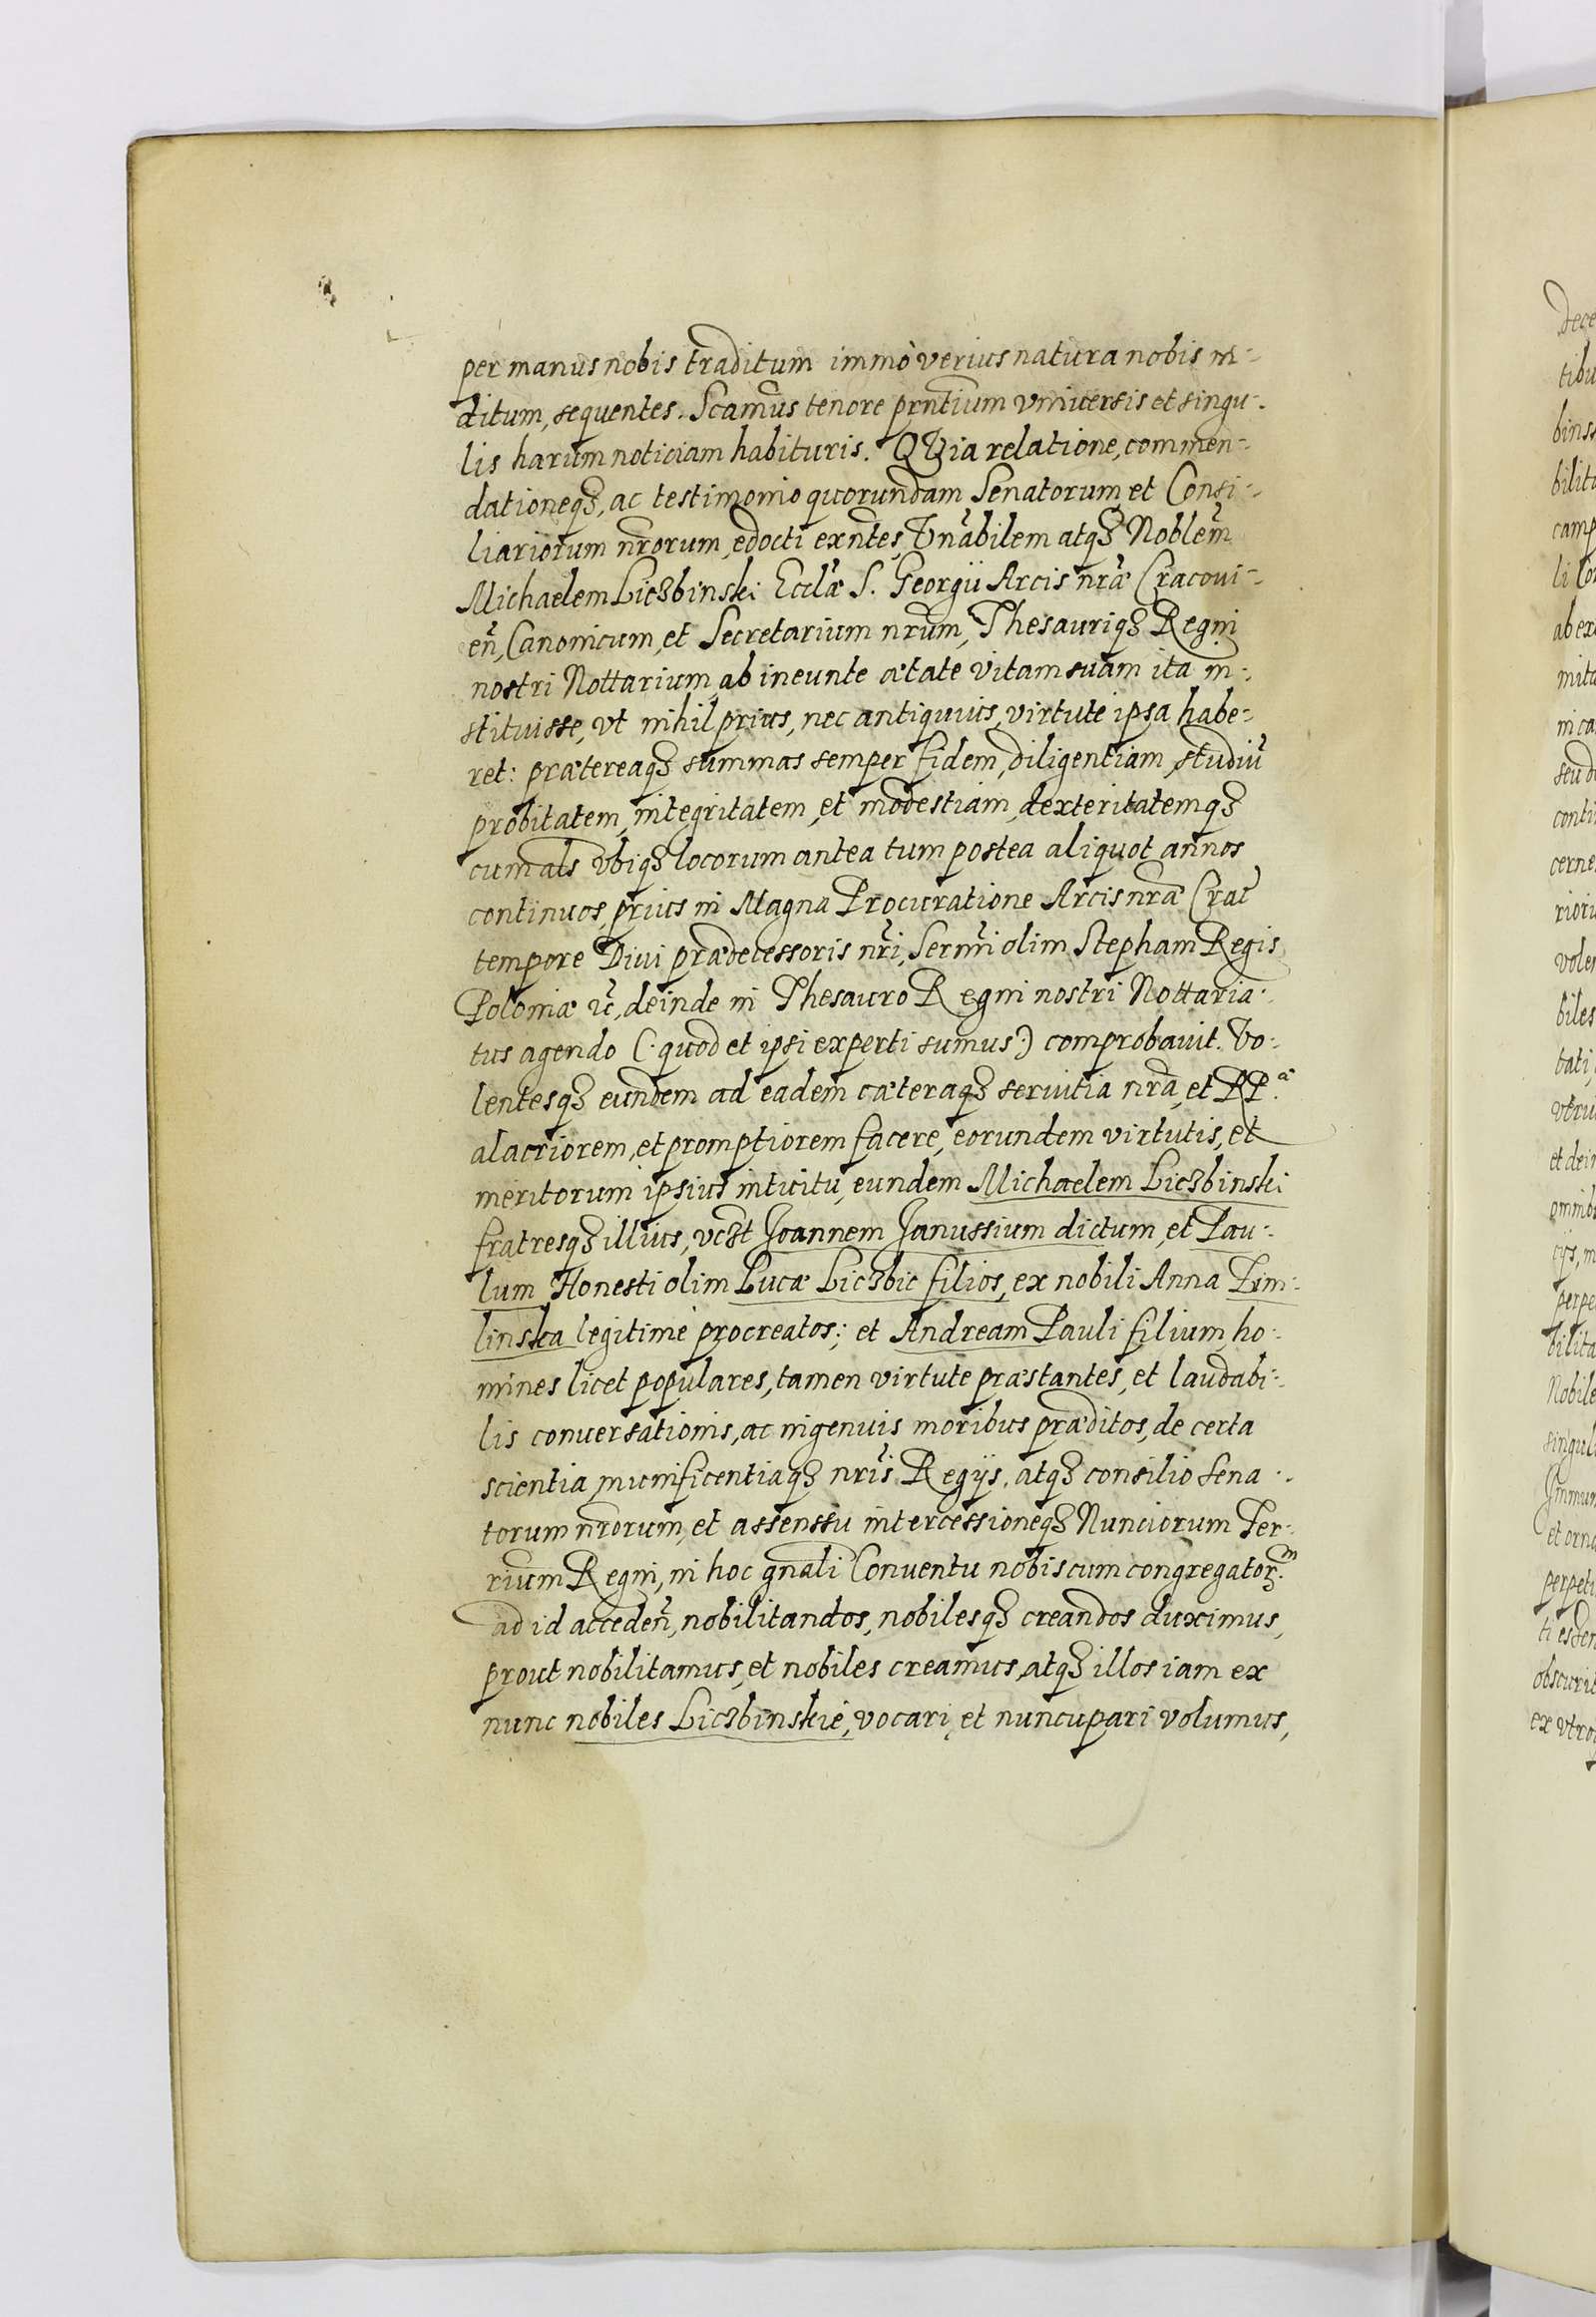 per manus nobis traditum immò verius natura nobis in-
ditum, sequentes. Scamus tenore prntium vniuersis et singu-
lis harum noticiam habituris. QVia relatione, commen-
dationeqȝ, ac testimonio quorundam Senatorum et Consi-
liariorum nrorum, edocti exntes, Vnabilem atqȝ Noblem
Michaelem Liczbinski Ecclæ S. Georgii Arcis nræ Cracoui-
eñ, Canonicum, et Secretarium nrum, Thesauriqȝ Regni
nostri Nottarium, ab ineunte ætate vitam suam ita in-
stituisse, vt nihil prius, nec antiquius, virtute ipsa habe-
ret: prætereaqȝ summas semper fidem, diligentiam, studiũ
probitatem, integritatem, et modestiam, dexteritatemqȝ
cum als vbiqȝ locorum antea tum postea aliquot annos
continuos, prius in Magna Procuratione Arcis nræ Crac̃
tempore Diui prædecessoris nri, Sermi olim Stephani Regis
Poloniæ ꝛc̃, deinde in Thesauro Regni nostri Nottaria-
tus agendo (: quod et ipsi experti sumus :) comprobauit. Vo-
lentesqȝ eundem ad eadem cæteraqȝ seruitia nra, et RP.ᵃᵉ
alacriorem, et promptiorem facere, eorundem virtutis, et
meritorum ipsius intuitu, eundem Michaelem Liczbinski
fratresqȝ illius, vczt Joannem Janussium dictum, et Pau-
lum Honesti olim Lucæ Liczbic filios, ex nobili Anna Pim-
linska legitimè procreatos; et Andream Pauli filium, ho-
mines licet populares, tamen virtute præstantes, et laudabi-
lis conuersationis, ac ingenuis moribus præditos, de certa
scientia, munificentiaqȝ nris Regijs, atqȝ consilio Sena-
torum nrorum, et assenssu intercessioneqȝ Nunciorum Ter-
rium Regni, in hoc gnali Conuentu nobiscum congregator.ᵐ
ad id acceden̄, nobilitandos, nobilesqȝ creandos duximus,
prout nobilitamus, et nobiles creamus, atqȝ illos iam ex
nunc nobiles Liczbinskie, vocari, et nuncupari volumus,